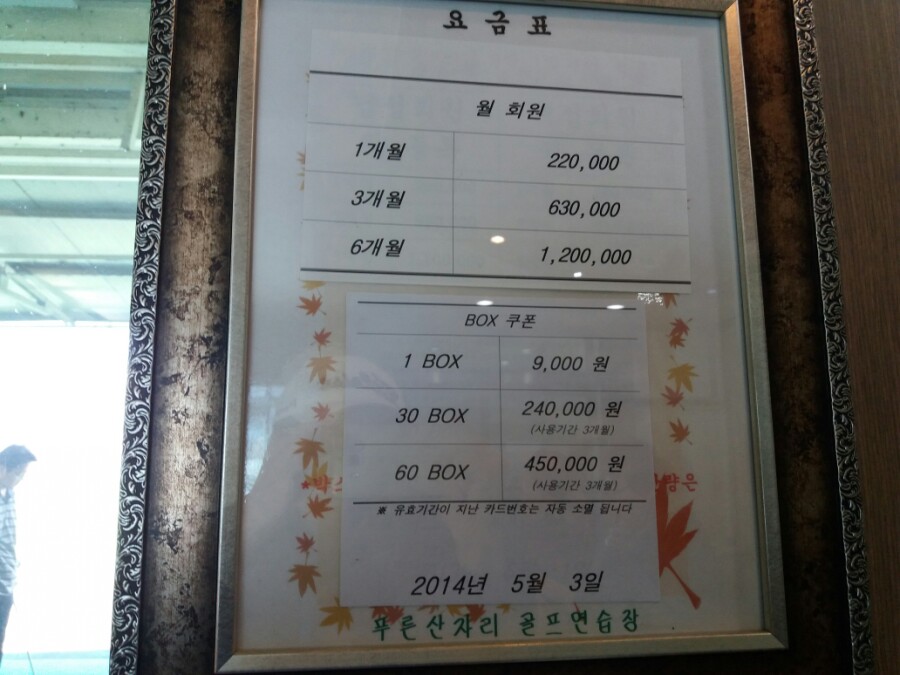 요금표
월 회원
1개월 220,000
3개월 630,000
6개월 1,200,000
BOX 쿠폰
1 BOX 9,000 원
30 BOX 240,000 원
(사용기간 3개월)
60 BOX 450,000 원
(사용기간 3개월)
※ 유효기간이 지난 카드번호는 자동 소멸 됩니다
2014년 5월 3일
푸른산자리 골프연습장